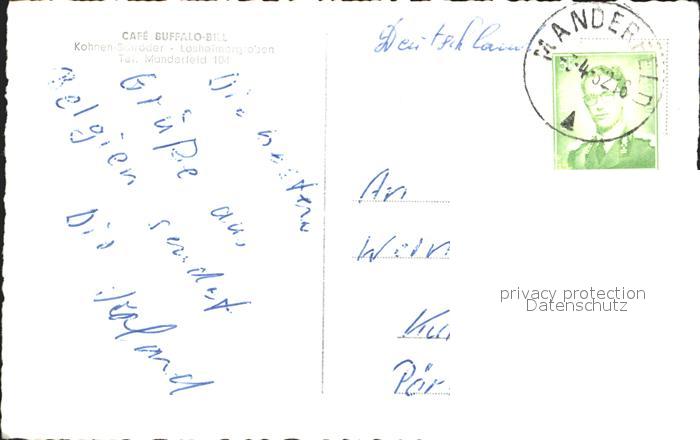 CAFÉ BUFFALO-BILL
Kohnen-Schröder - Losheimergraben
Tel. Manderfeld 104
Die besten
Grüße aus
Belgien sendet
Dir
Roland
Deutschland
MANDERFELD
An
Kur
privacy protection
Datenschutz